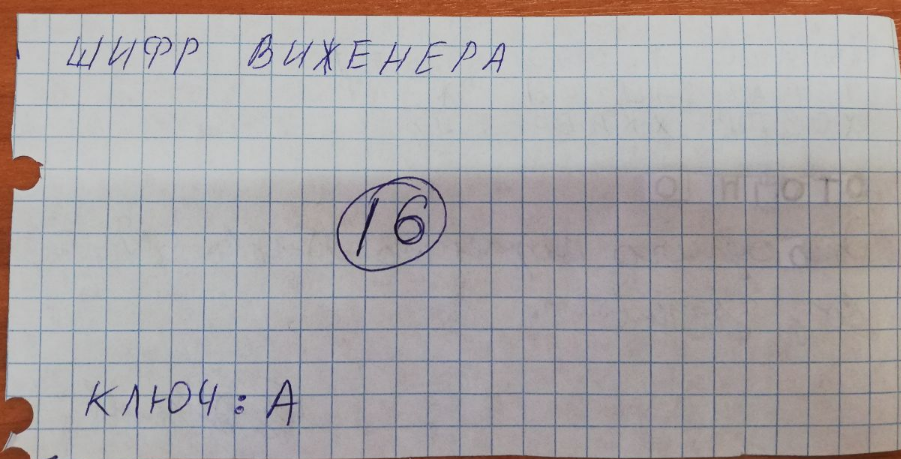 ШИФР ВИЖЕНЕРА
16
КЛЮЧ: А